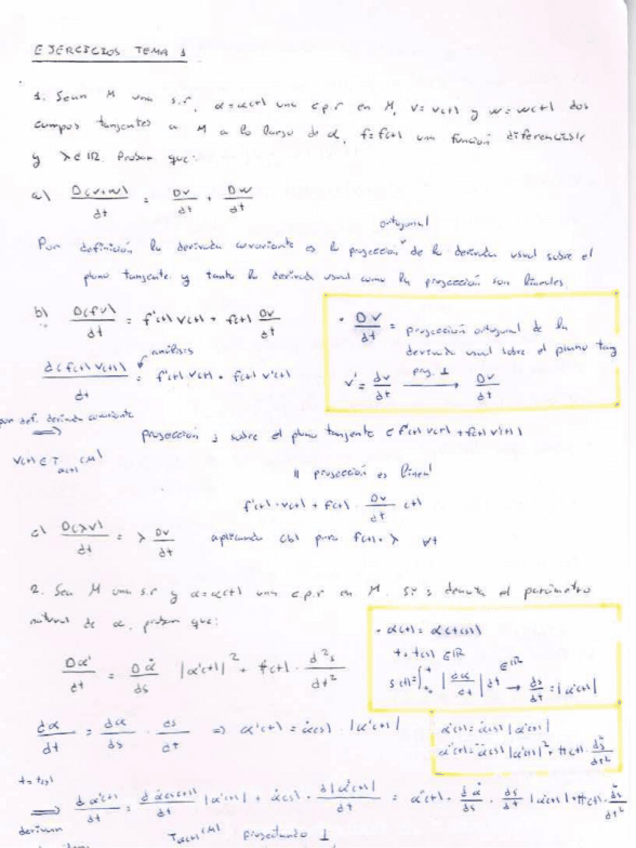 EJERCICIOS TEMA 1
1. Sean M una s.r, α=α(t) una c.p.r en M, v=v(t) y w=w(t) dos
campos tangentes a M a lo largo de α, f=f(t) una función diferenciable
y λ∈IR. Probar que:
a) D(v+w)/dt = Dv/dt + Dw/dt
ortogonal
Por definición la derivada covariante es la proyección de la derivada usual sobre el
plano tangente y tanto la derivada usual como la proyección son lineales.
b) D(fv)/dt = f'(t) v(t) + f(t) Dv/dt
• Dv/dt = proyección ortogonal de la
derivada usual sobre el plano tang
v' = dv/dt proy. ⊥ → Dv/dt
análisis
d(f(t) v(t))/dt = f'(t) v(t) + f(t) v'(t)
por def. derivada covariante
⟹ proyección ⊥ sobre el plano tangente (f'(t) v(t) + f(t) v'(t))
v(t) ∈ T α(t) (M)
|| proyección es lineal
f'(t) · v(t) + f(t) · Dv/dt (t)
c) D(λv)/dt = λ Dv/dt aplicando (b) para f(t)=λ ∀t
2. Sea M una s.r y α=α(t) una c.p.r en M. Si s denota el parámetro
natural de α, probar que:
Dα'/dt = Dα̇/ds |α'(t)|² + ṫ(t) · d²s/dt²
• α(t) = α(t(s))
t = t(s) ∈ IR
s(t) = ∫ |dα/dt| dt → ds/dt = |α'(t)|
∈ IR
dα/dt = dα/ds · ds/dt ⇒ α'(t) = α̇(s) · |α'(t)|
α'(t) = α̇(s) |α'(t)|
α''(t) = α̈(s) |α'(t)|² + ṫ(t) · d²s/dt²
t = t(s)
⟹ dα'(t)/dt = |α'(t)| + α̇(s) · d|α'(t)|/dt =
derivan
T α(t) (M) proyectando ⊥